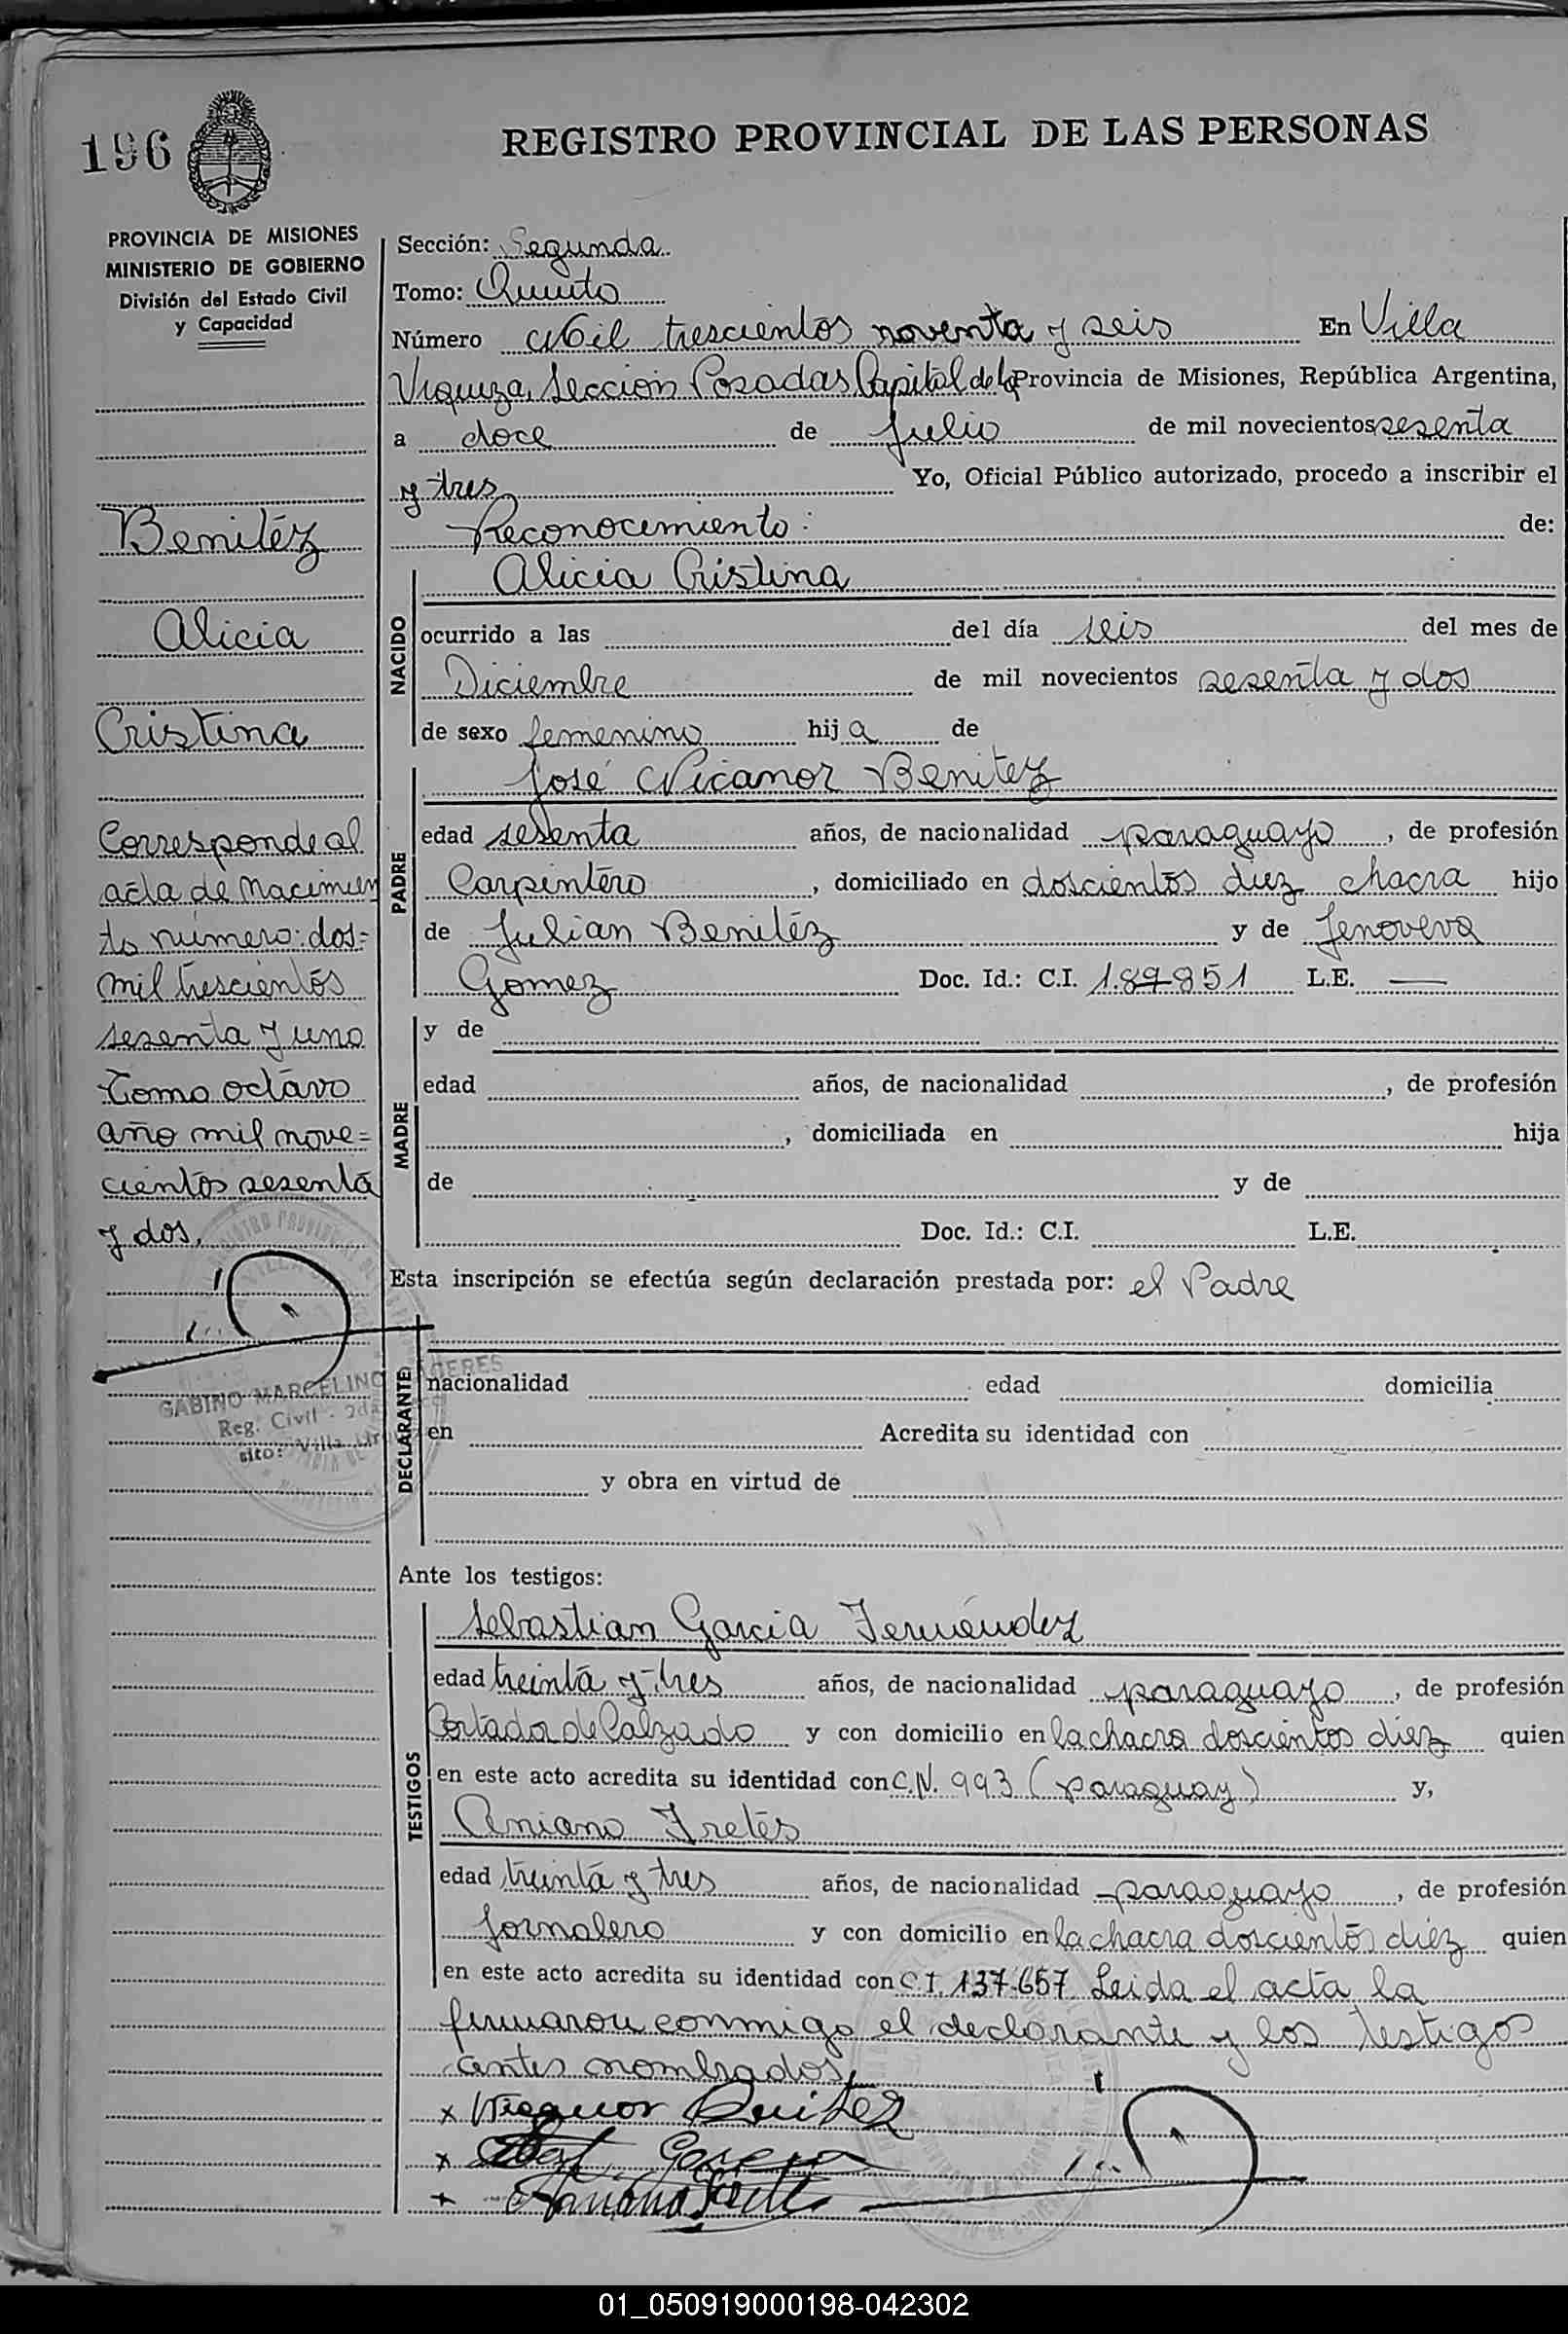 196
REGISTRO PROVINCIAL DE LAS PERSONAS
PROVINCIA DE MISIONES
MINISTERIO DE GOBIERNO
División del Estado Civil
y Capacidad
Benitéz
Alicia
Cristina
Corresponde al
acta de nacimien
to número: dos=
mil trescientos
sesenta y uno
Tomo octavo
año mil nove=
cientos sesenta
y dos.
GABINO MARCELINO
Reg. Civil - 2da
sito: Villa
Sección: Segunda
Tomo: Quinto
Número Mil trescientos noventa y seis En Villa
Urquiza, Sección Posadas Capital de la Provincia de Misiones, República Argentina,
a doce de Julio de mil novecientos sesenta
y tres Yo, Oficial Público autorizado, procedo a inscribir el
Reconocimiento: de:
NACIDO
Alicia Cristina
ocurrido a las del día seis del mes de
Diciembre de mil novecientos sesenta y dos
de sexo femenino hija de
PADRE
José Nicanor Benitez
edad sesenta años, de nacionalidad paraguayo, de profesión
Carpintero, domiciliado en doscientos diez chacra hijo
de Julian Benitéz y de Jenoveva
Gomez Doc. Id.: C.I. 187851 L.E. —
MADRE
y de
edad años, de nacionalidad , de profesión
, domiciliada en hija
de y de
Doc. Id.: C.I. L.E.
Esta inscripción se efectúa según declaración prestada por: el Padre
DECLARANTE
nacionalidad edad domicilia
en Acredita su identidad con
y obra en virtud de
Ante los testigos:
TESTIGOS
Sebastian Garcia Fernández
edad treinta y tres años, de nacionalidad paraguayo, de profesión
Cortador de Calzado y con domicilio en la chacra doscientos diez quien
en este acto acredita su identidad con C.N. 993 (paraguay) y,
Aniano Fretes
edad treinta y tres años, de nacionalidad paraguayo, de profesión
Jornalero y con domicilio en la chacra doscientos diez quien
en este acto acredita su identidad con C.I. 137.657 Leida el acta la
firmaron conmigo el declarante y los testigos
antes nombrados.
x Nicanor Benitez
x Garcia
+
01_050919000198-042302